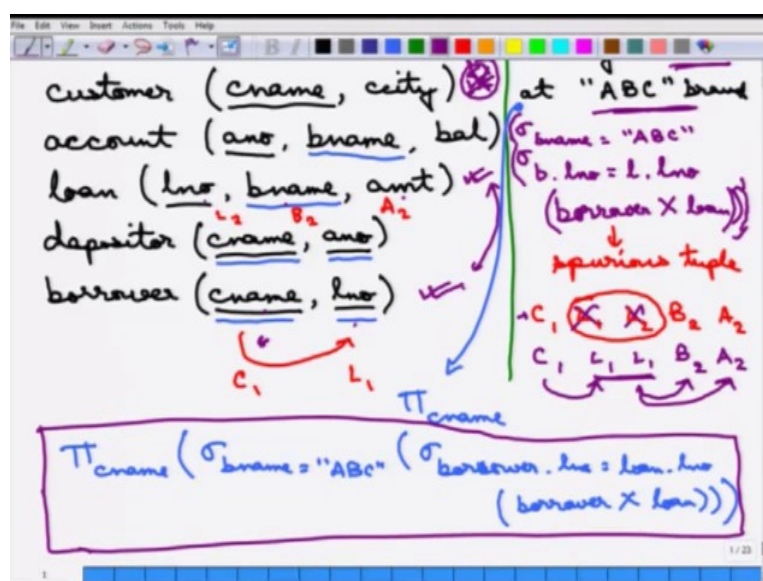 File Edit View Insert Actions Tools Help
customer (cname, ccity)
account (ano, bname, bal)
loan (lno, bname, amt)
L2 B2 A2
depositor (cname, ano)
borrower (cname, lno)
C1 L1
at "ABC" branch
(σ bname = "ABC"
(σ b.lno = l.lno
(borrower X loan)))
↓
spurious tuple
C1 L1 L2 B2 A2
C1 L1 L1 B2 A2
π cname
π cname (σ bname = "ABC" (σ borrower.lno = loan.lno
(borrower X loan)))
1 / 23
1